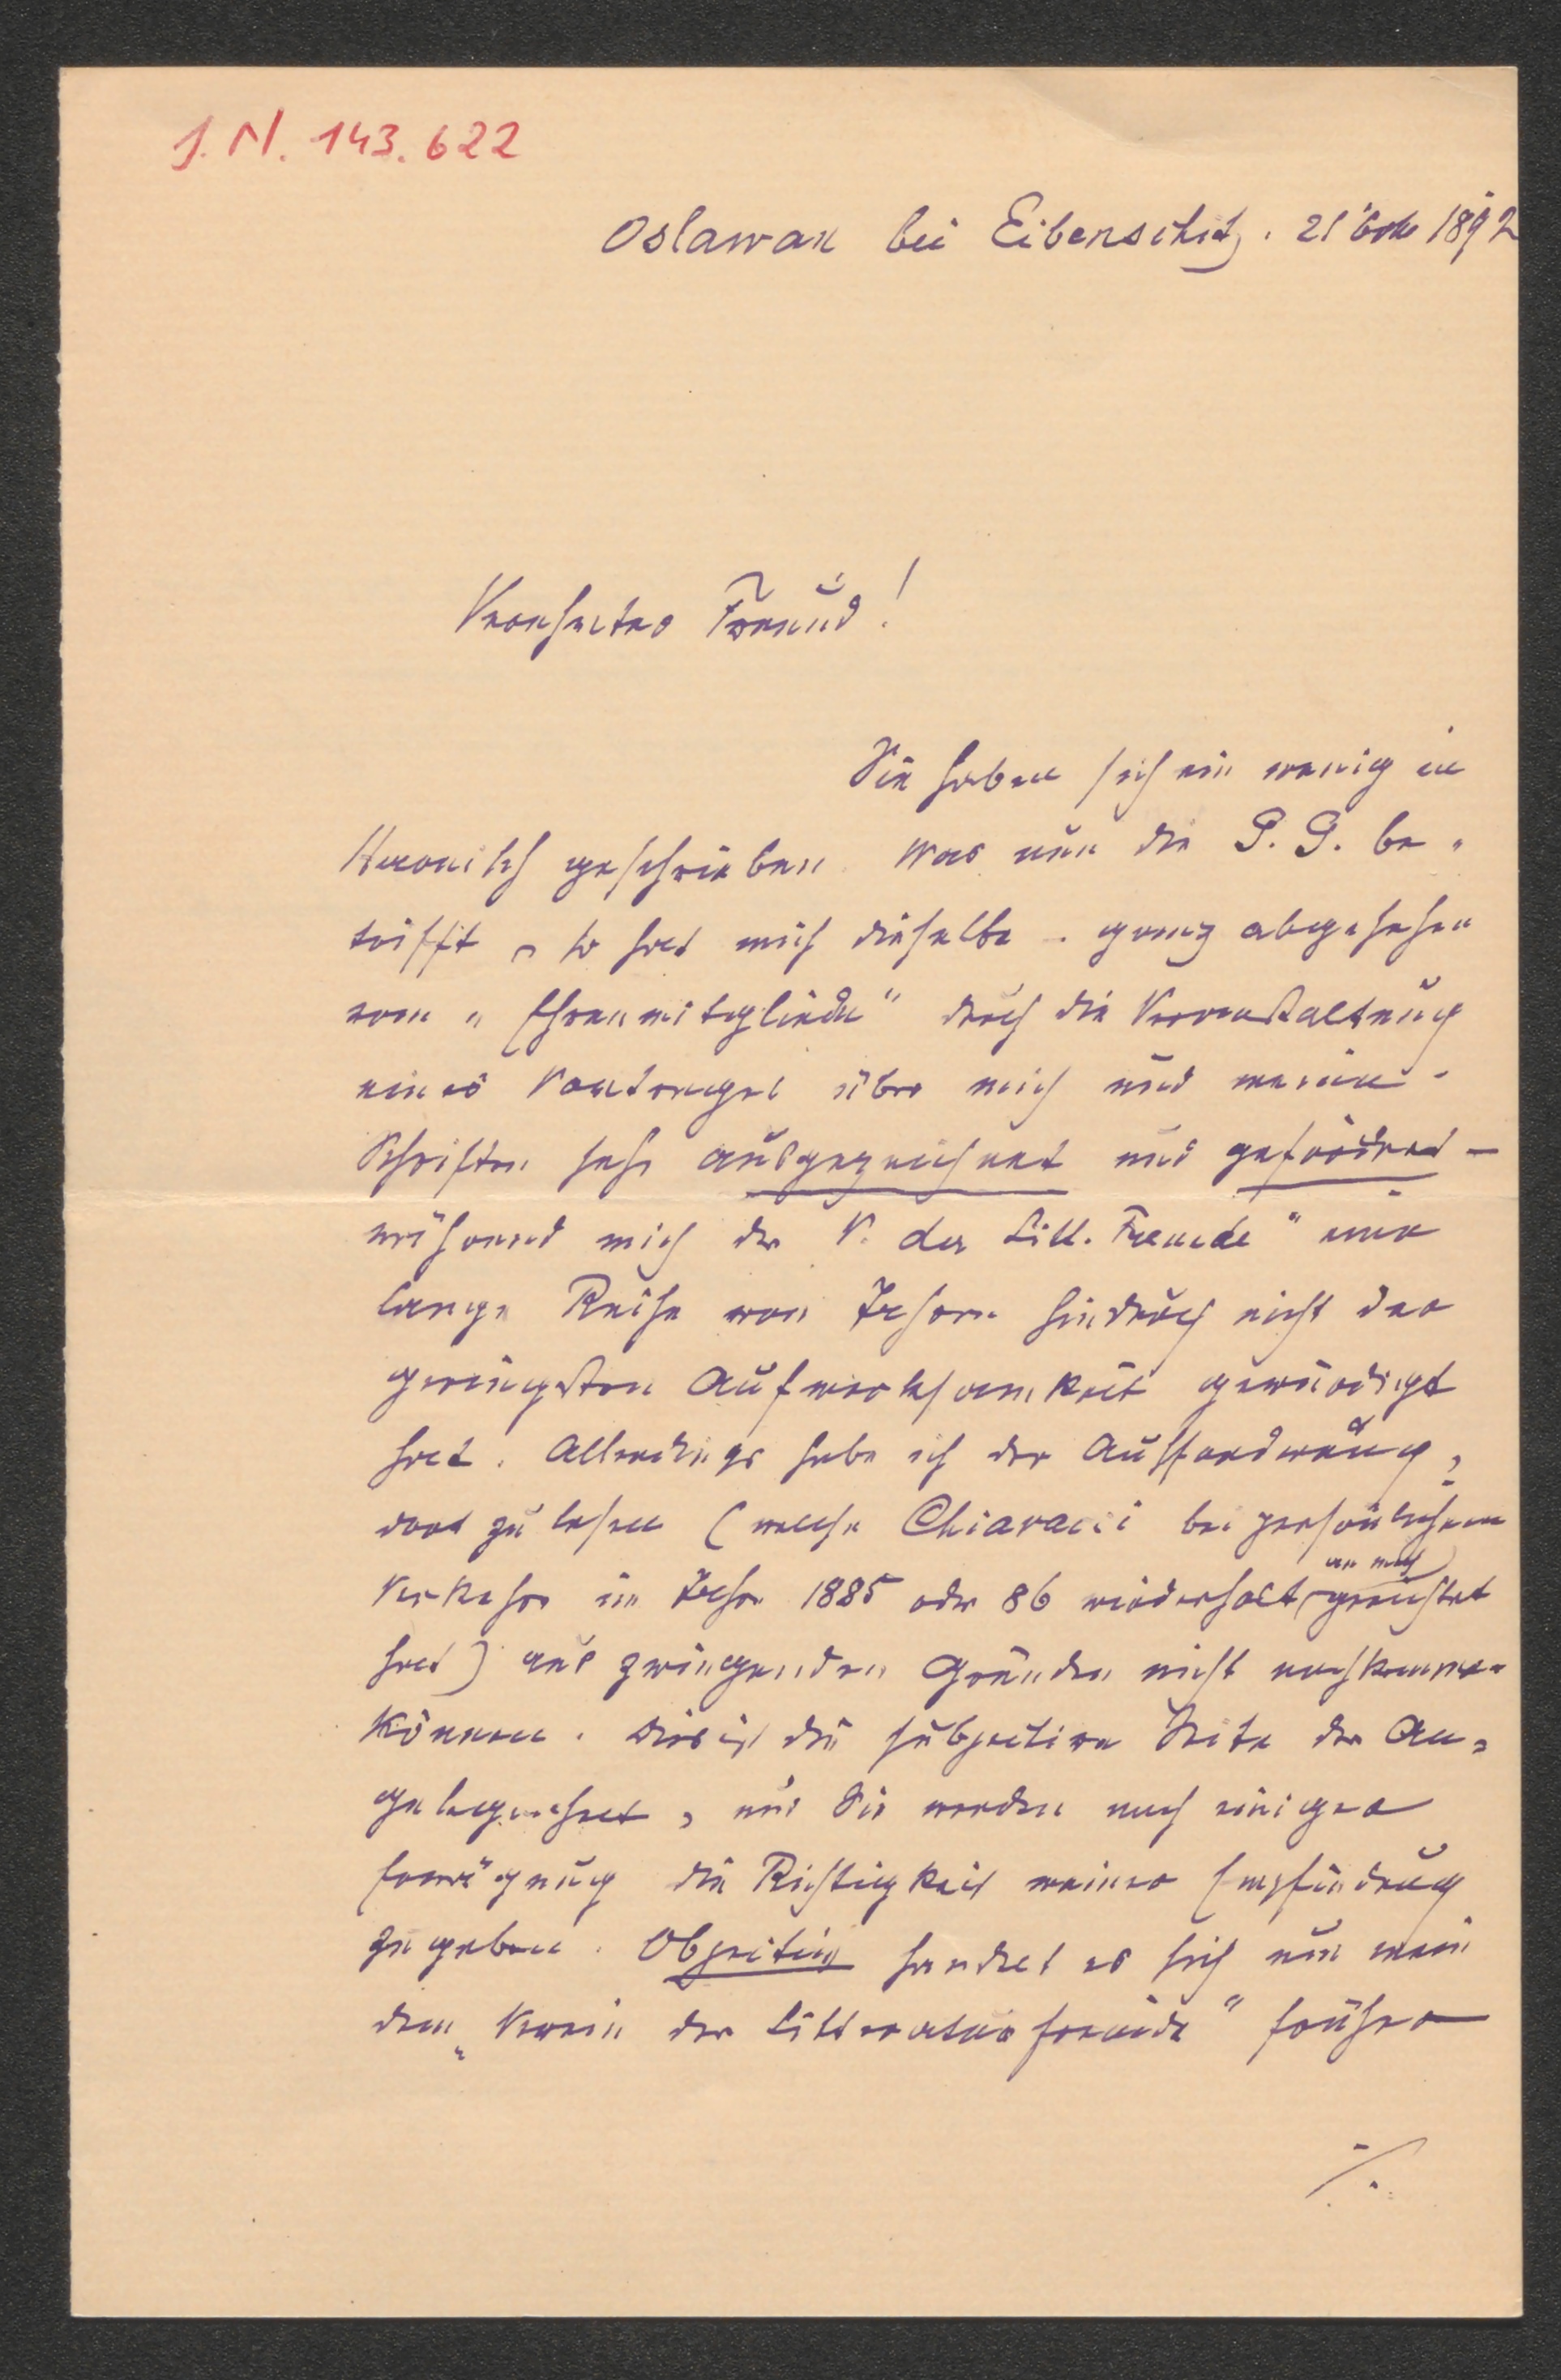 J. N. 143.622
Oslawan bei Eibenschitz. 21 1892
Verehrter Freund!
Sie haben sich ein wenig in
Harnisch geschrieben. Was nun die G. G. be-
trifft, so hat mich dieselbe - ganz abgesehen
vom „Ehrenmitgliede" durch die Veranstaltung
eines Vortrages über mich und meine
Schriften sehr ausgezeichnet und gefördert –
während mich der V. der Litt. Freunde" eine
lange Reihe von Jahren hindurch nicht der
geringsten Aufmerksamkeit gewürdigt
hat. Allerdings habe ich der Aufforderung,
dort zu lesen (welche Chiavacci bei persönlichem
Verkehr im Jahre 1885 oder 86 wiederholt an mich gerichtet
hat) aus zwingenden Gründen nicht nachkommen
können. Dies ist die subjective Seite der An-
gelegenheit, und Sie werden nach einiger
Erwägung die Richtigkeit meiner Empfindung
zugeben. Objectiv handelt es sich um mein
dem „Verein der Litteraturfreunde" früher
./.